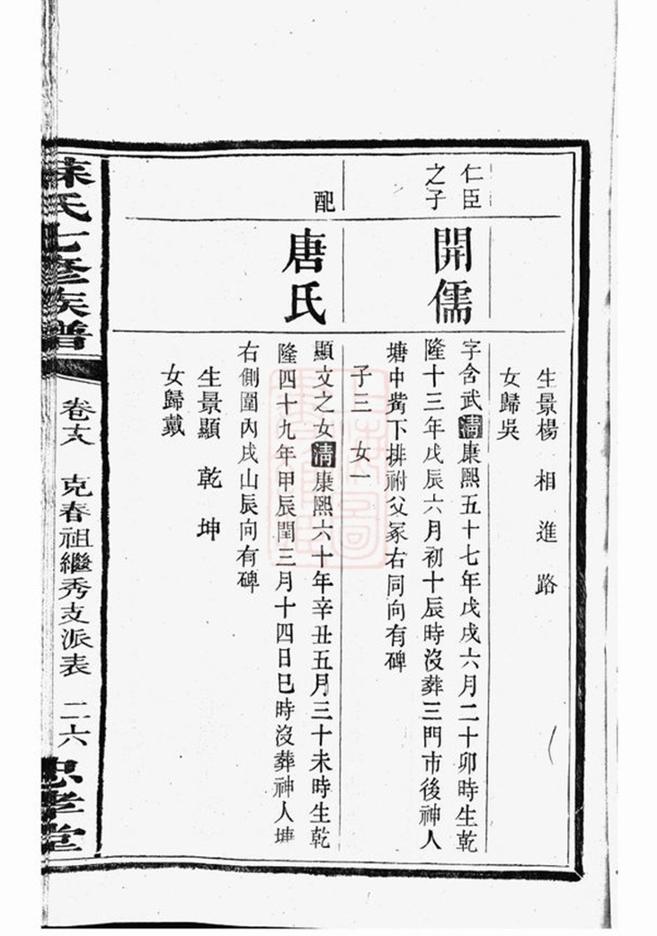 生景楊　相　進　路
女歸吳
仁臣
之子
開儒
字含武清康熙五十七年戊戌六月二十卯時生乾
隆十三年戊辰六月初十辰時沒葬三門市後神人
塘中觜下排祔父冢右同向有碑
子三　女一
配
唐氏
顯文之女清康熙六十年辛丑五月三十未時生乾
隆四十九年甲辰閏三月十四日巳時沒葬神人塘
右側圍內戌山辰向有碑
生景顯　乾　坤
女歸戴
氏七修族譜
卷十八
克春祖繼秀支派表
二六
忠孝堂